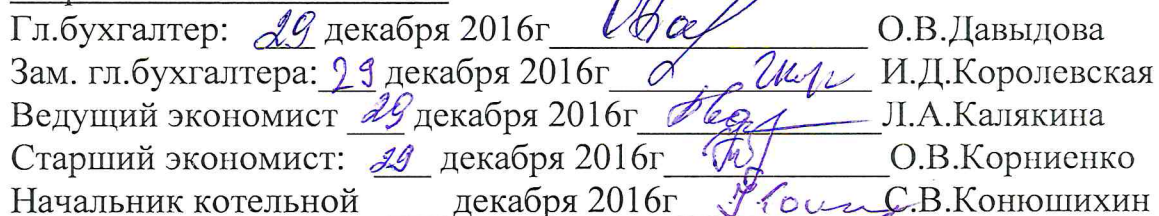 Гл.бухгалтер: 29 декабря 2016г О.В.Давыдова
Зам. гл.бухгалтера: 29 декабря 2016г И.Д.Королевская
Ведущий экономист 29 декабря 2016г Л.А.Калякина
Старший экономист: 29 декабря 2016г О.В.Корниенко
Начальник котельной декабря 2016г С.В.Конюшихин